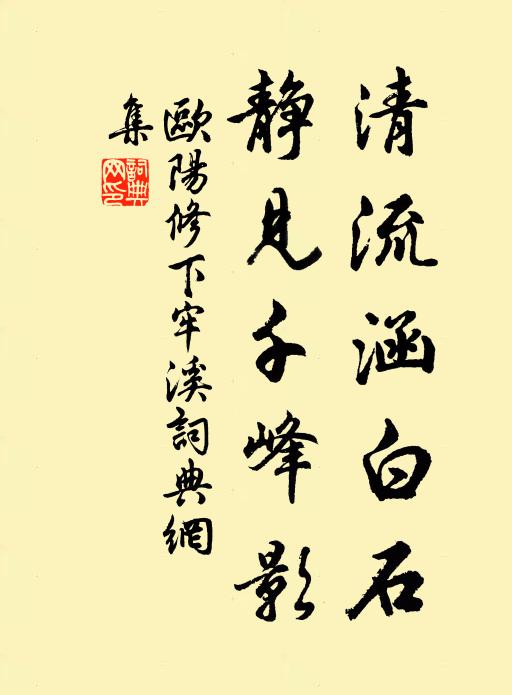 清流涵白石
静見千峰影
歐陽修下牢溪詞典網
集
詞典網印